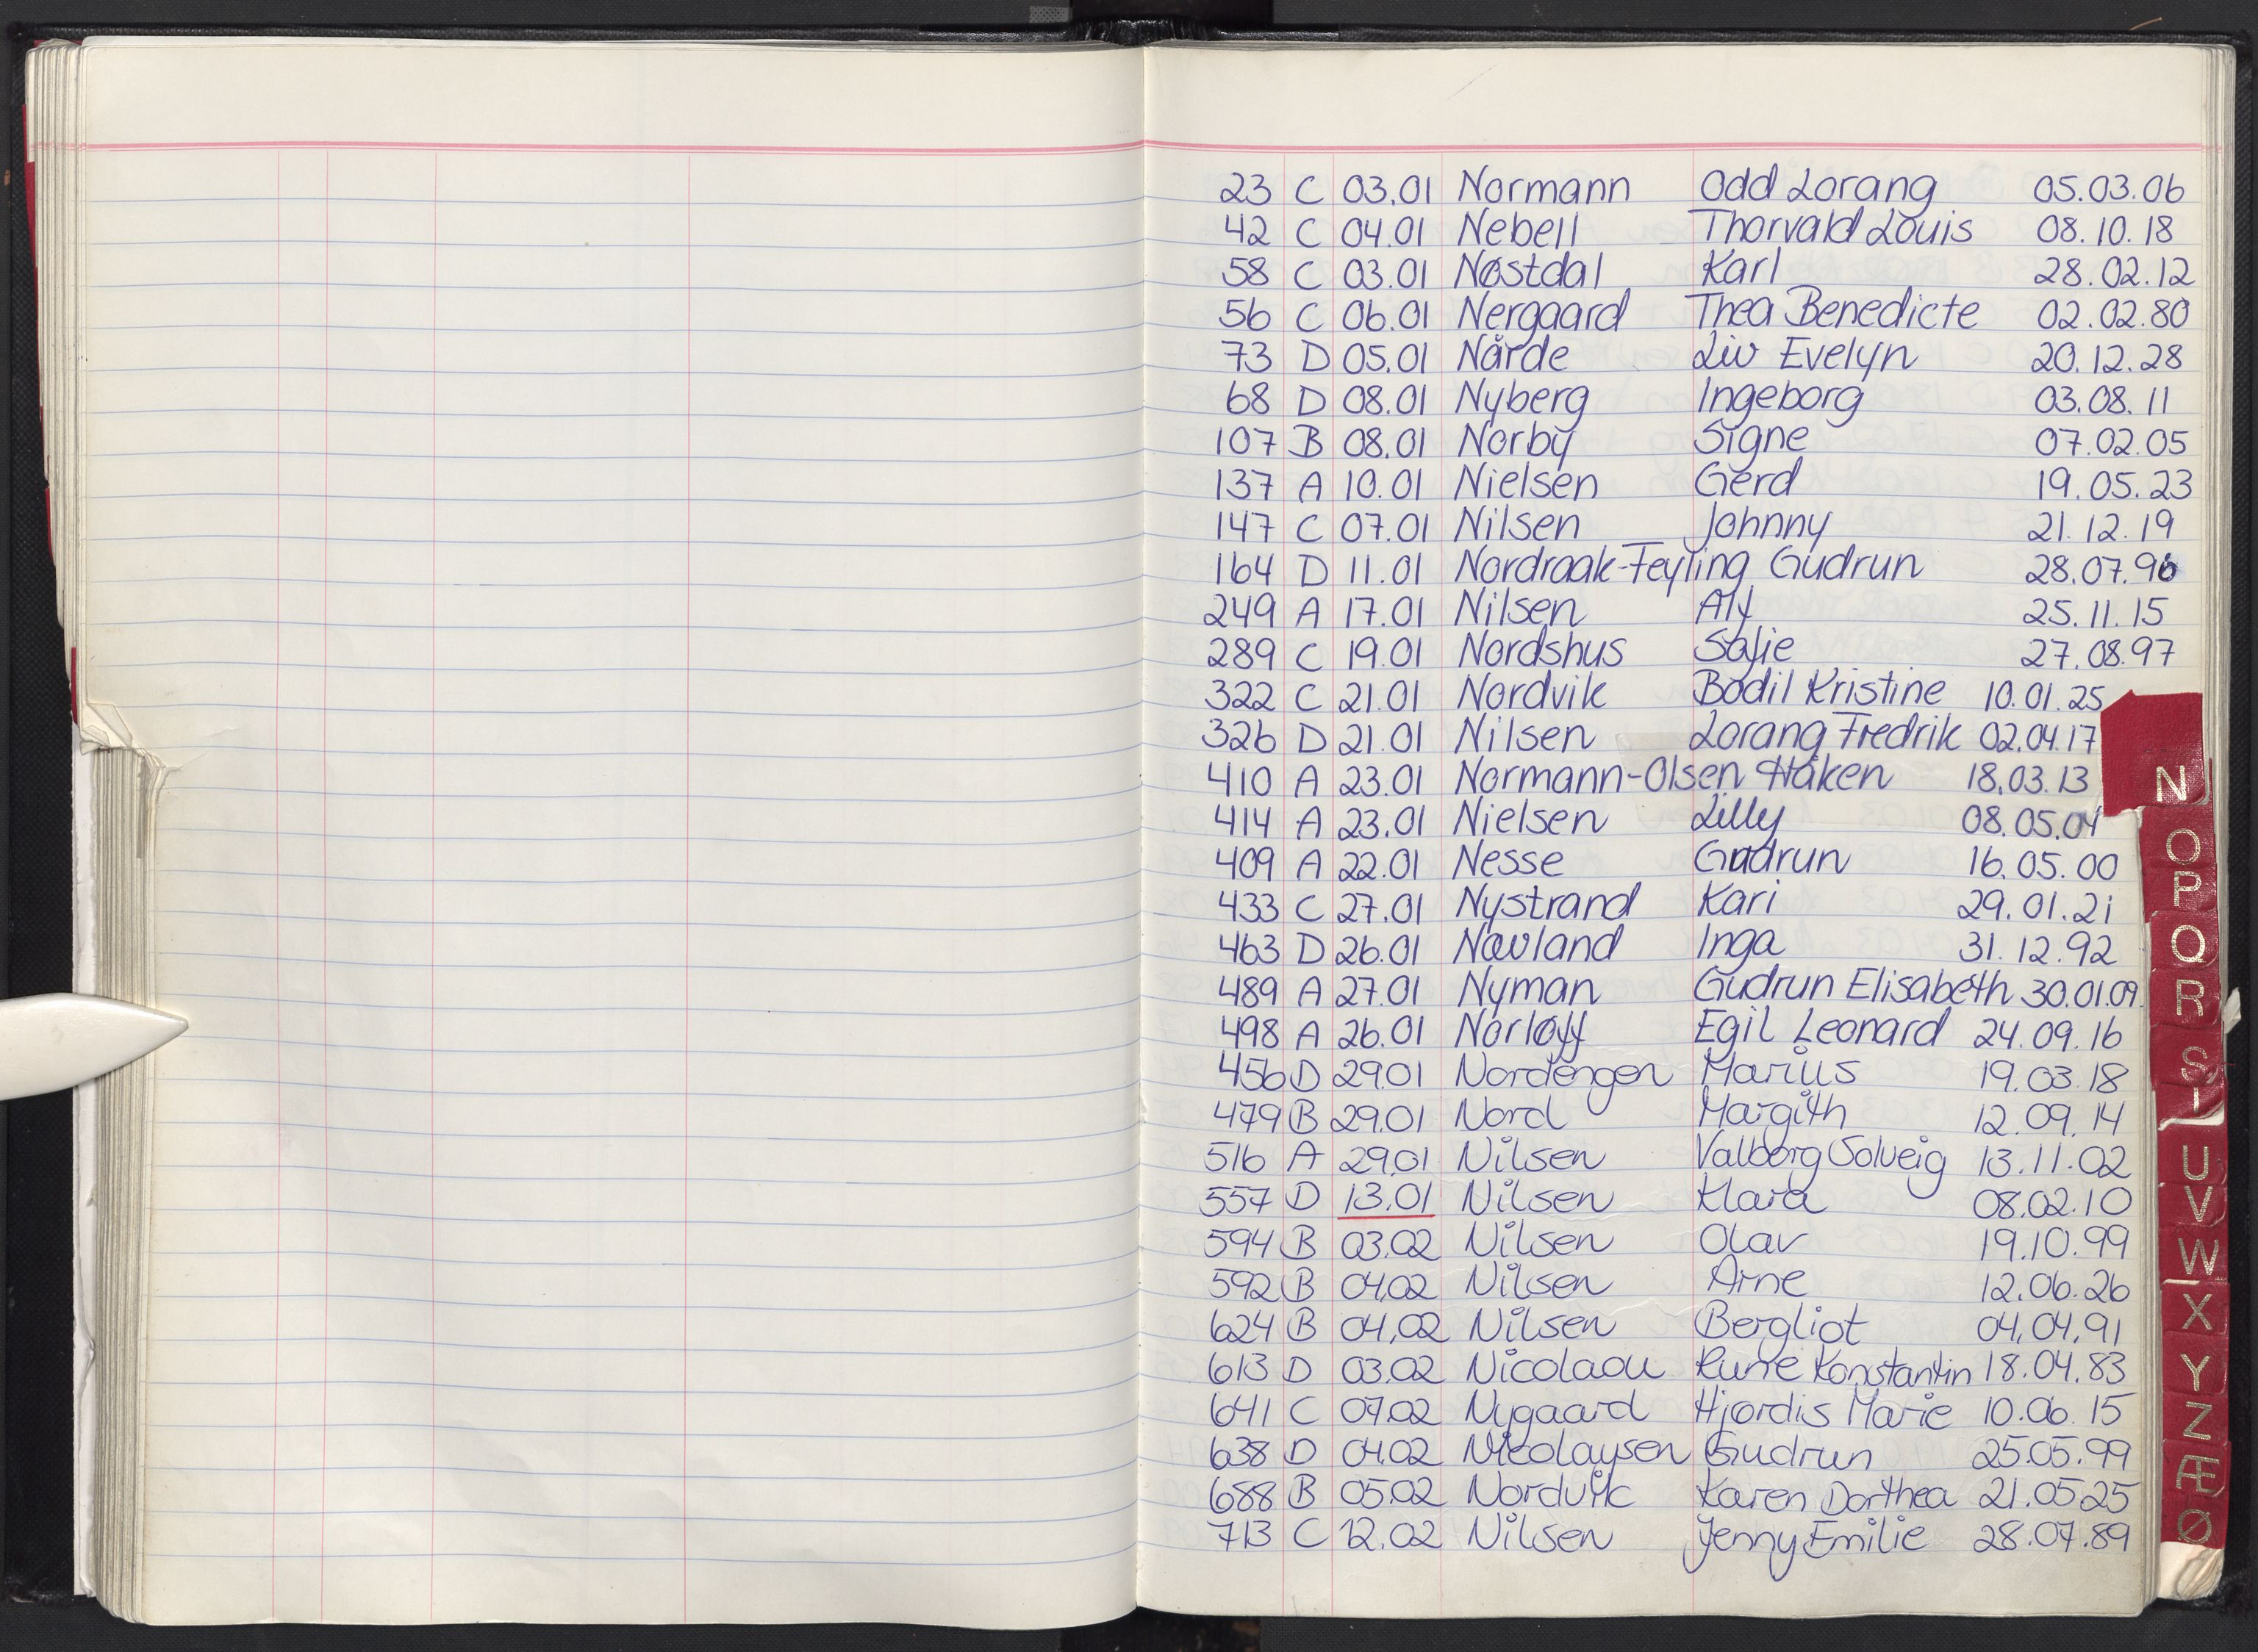 23 C 03.01 Normann Odd Lorang 05.03.06
42 C 04.01 Nebell Thorvald Louis 08.10.18
58 C 03.01 Nøstdal Karl 28.02.12
56 C 06.01 Nergaard Thea Benedicte 02.02.80
73 D 05.01 Nårde Liv Evelyn 20.12.28
68 D 08.01 Nyberg Ingeborg 03.08.11
107 B 08.01 Norby Signe 07.02.05
137 A 10.01 Nielsen Gerd 19.05.23
147 C 07.01 Nilsen Johnny 21.12.19
164 D 11.01 Nordraak-Feyling Gudrun 28.07.96
249 A 17.01 Nilsen Alf 25.11.15
289 C 19.01 Nordshus Sofie 27.08.97
322 C 21.01 Nordvik Bodil Kristine 10.01.25
326 D 21.01 Nilsen Lorang Fredrik 02.04.17
410 A 23.01 Normann-Olsen Håken 18.03.13
414 A 23.01 Nielsen Lilly 08.05.04
409 A 22.01 Nesse Gudrun 16.05.00
433 C 27.01 Nystrand Kari 29.01.21
463 D 26.01 Nævland Inga 31.12.92
489 A 27.01 Nyman Gudrun Elisabeth 30.01.09
498 A 26.01 Norløff Egil Leonard 24.09.16
456 D 29.01 Nordengen Marius 19.03.18
479 B 29.01 Nord Margith 12.09.14
516 A 29.01 Nilsen Valborg Solveig 13.11.02
557 D 13.01 Nilsen Klara 08.02.10
594 B 03.02 Nilsen Olav 19.10.99
592 B 04.02 Nilsen Arne 12.06.26
624 B 04.02 Nilsen Bergliot 04.04.91
613 D 03.02 Nicolaou Rune Konstantin 18.04.83
641 C 07.02 Nygaard Hjørdis Marie 10.06.15
638 D 04.02 Nicolaysen Gudrun 25.05.99
688 B 05.02 Nordvik Karen Dorthea 21.05.25
713 C 12.02 Nilsen Jenny Emilie 28.07.89
N
O
P
Q
R
S
T
U
V
W
X
Y
Z
Æ
Ø